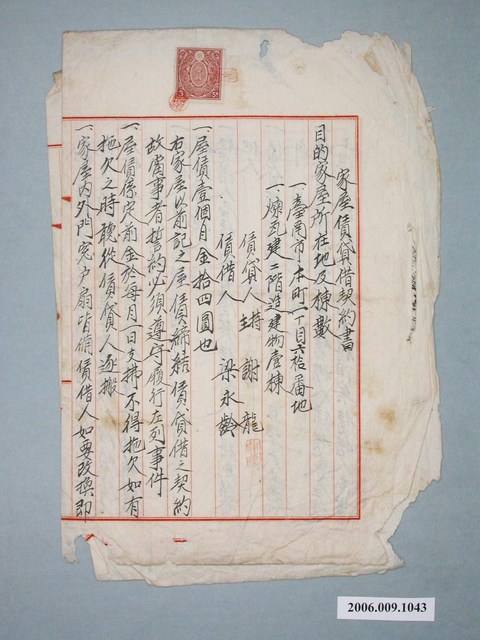 家屋賃貸借契約書
目的家屋所在地及棟數
一臺南市本町一丁目六拾番地
一煉瓦建二階造建物壹棟
賃貸人 謝龍
賃借人 梁永齡
一屋賃壹個月金拾四圓也
右家屋以前記之屋賃締結賃貸借之契約
故當事者誓約必須遵守履行左列事件
一屋賃係定前金於每月一日支拂不得拖欠如有
拖欠之時聽從賃貸人逐搬
一家屋內外門窓户扇皆備賃借人如要改換即
2006.009.1043